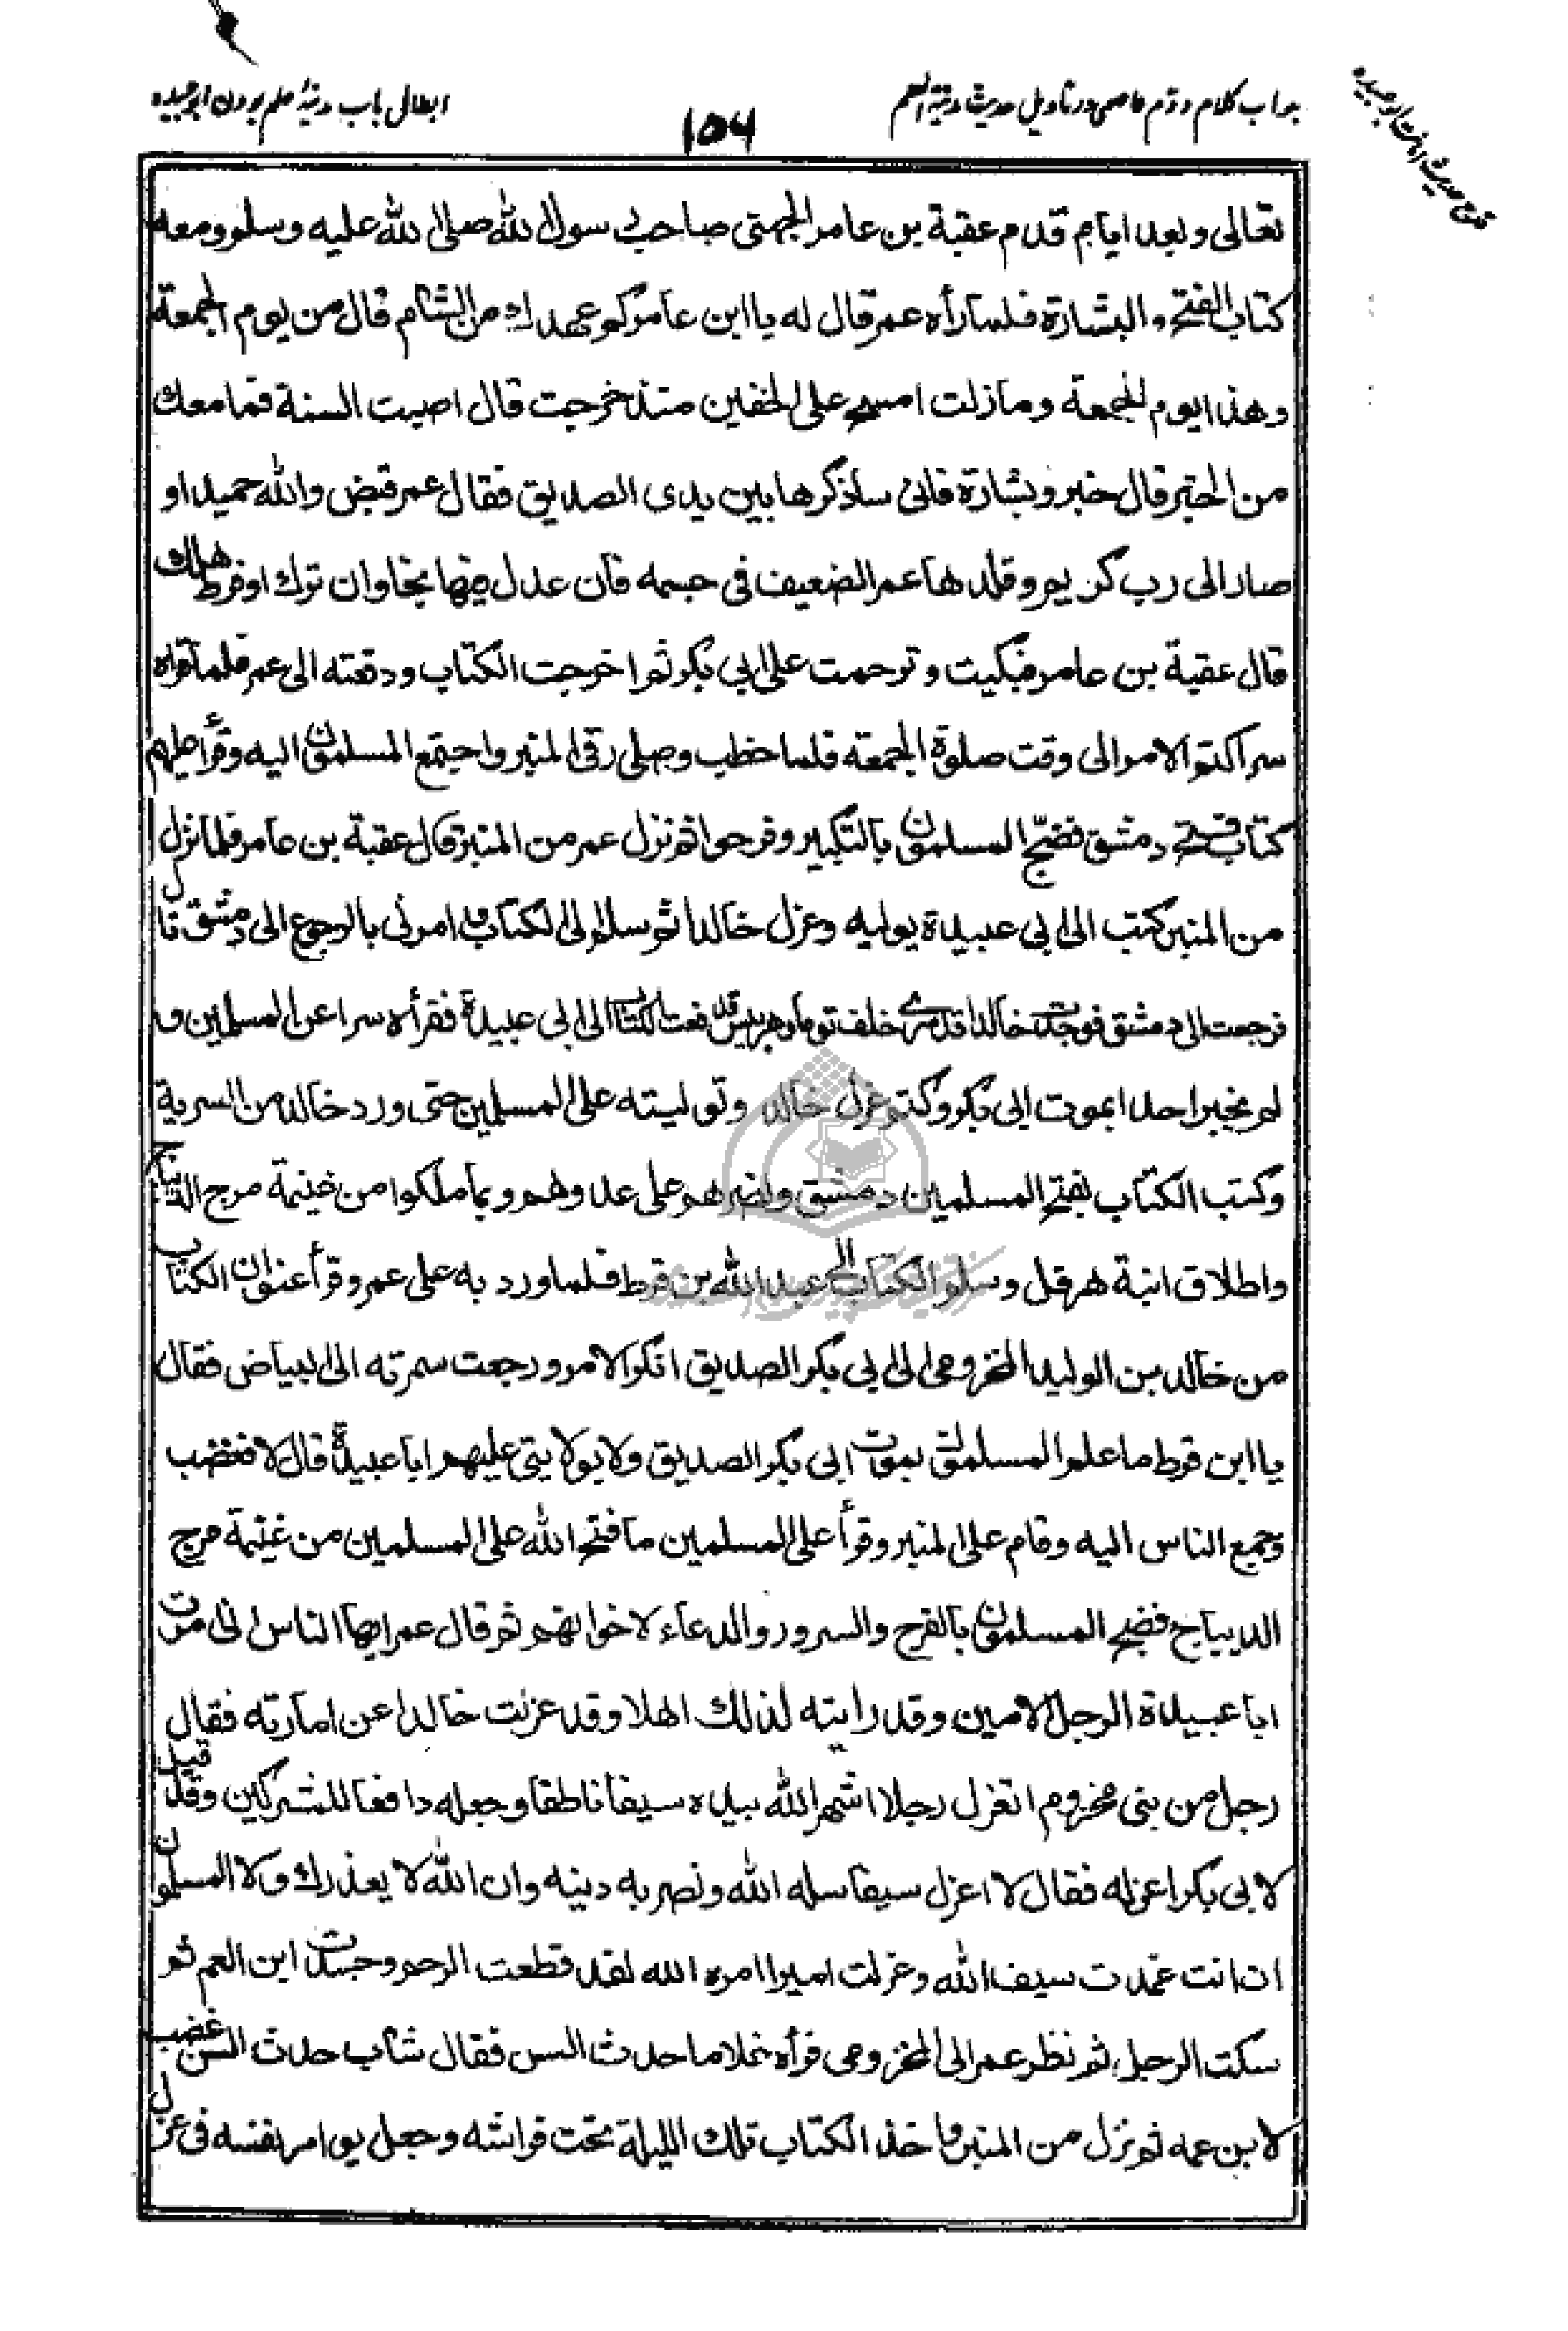 جواب کلام دوم عاصمی در تاویل حدیث مدینة العلم
۱۵۶
ابطال باب مدینهٔ علم بودن ابو عبیده
قدح حدیث امانت ابو عبیده
تعالى وبعد ايام قدم عقبة بن عامر الجهنى صاحب رسول الله صلى الله عليه وسلم ومعه
كتاب الفتح والبشارة فلما رأه عمر قال له يا ابن عامر كم عهدك من الشام قال من يوم الجمعة
وهذا يوم الجمعة وما زلت امسح على الخفين منذ خرجت قال اصبت السنة فما معك
من الخبر قال خبر وبشارة فانى ساذكرها بين يدى الصديق فقال عمر قبض والله حميدا و
صار الى رب كريم وقلدها عمر الضعيف فى جسمه فان عدل فيها نجا وان ترك او فرط هلك
قال عقبة بن عامر فبكيت وترحمت على ابي بكر ثم اخرجت الكتاب ودفعته الى عمر فلما قرأه
سرا كتم الامر الى وقت صلوة الجمعة فلما خطب وصلى رقى المنبر واجتمع المسلمون اليه وقرأ عليهم
كتاب فتح دمشق فضجّ المسلمون بالتكبير وفرحوا ثم نزل عمر من المنبر قال عقبة بن عامر فلما نزل
من المنبر كتب الى ابي عبيدة يوليه وعزل خالدا ثم سلم الى الكتاب وامرنى بالرجوع الى دمشق قال
فرجعت الى دمشق فوجدت خالدا قد سرى خلف توما وهربيس فدفعت الكتاب الى ابي عبيدة فقرأه سرا عن المسلمين و
لم يخبر احدا بموت ابي بكر وكتم عزل خالد وتوليته على المسلمين حتى ورد خالد من السرية
وكتب الكتاب بفتح المسلمين دمشق ونصرهم على عدوهم وبما ملكوا من غنيمة مرج الديباج
واطلاق ابنة هرقل وسلم الكتاب الى عبد الله بن قرط فلما ورد به على عمر وقرأ عنوان الكتاب
من خالد بن الوليد المخزومى الى ابي بكر الصديق انكر الامر ورجعت سمرته الى البياض فقال
يا ابن قرط ما علم المسلمون بموت ابي بكر الصديق ولا بولايتى عليهم ابا عبيدة قال لا فغضب
وجمع الناس اليه وقام على المنبر وقرأ على المسلمين ما فتح الله على المسلمين من غنيمة مرج
الديباج فضج المسلمون بالفرح والسرور والدعاء لاخوانهم ثم قال عمر ايها الناس انى امرت
ابا عبيدة الرجل الامين وقد رايته لذلك اهلا وقد عزلت خالدا عن امارته فقال
رجل من بنى مخزوم اتعزل رجلا اشهر الله بيده سيفا ناطقا وجعله دافعا للمشركين وقد قيل
لابي بكر اعزله فقال لا اعزل سيفا سله الله ونصر به دينه وان الله لا يعذرك ولا المسلمون
ان انت غمدت سيف الله وعزلت اميرا امره الله لقد قطعت الرحم وحسدت ابن العم ثم
سكت الرجل ثم نظر عمر الى المخزومى فرأه غلاما حدث السن فقال شاب حدث السن غضب
لابن عمه ثم نزل من المنبر واخذ الكتاب تلك الليلة تحت فراشه وجعل يوامر نفسه فى عزل